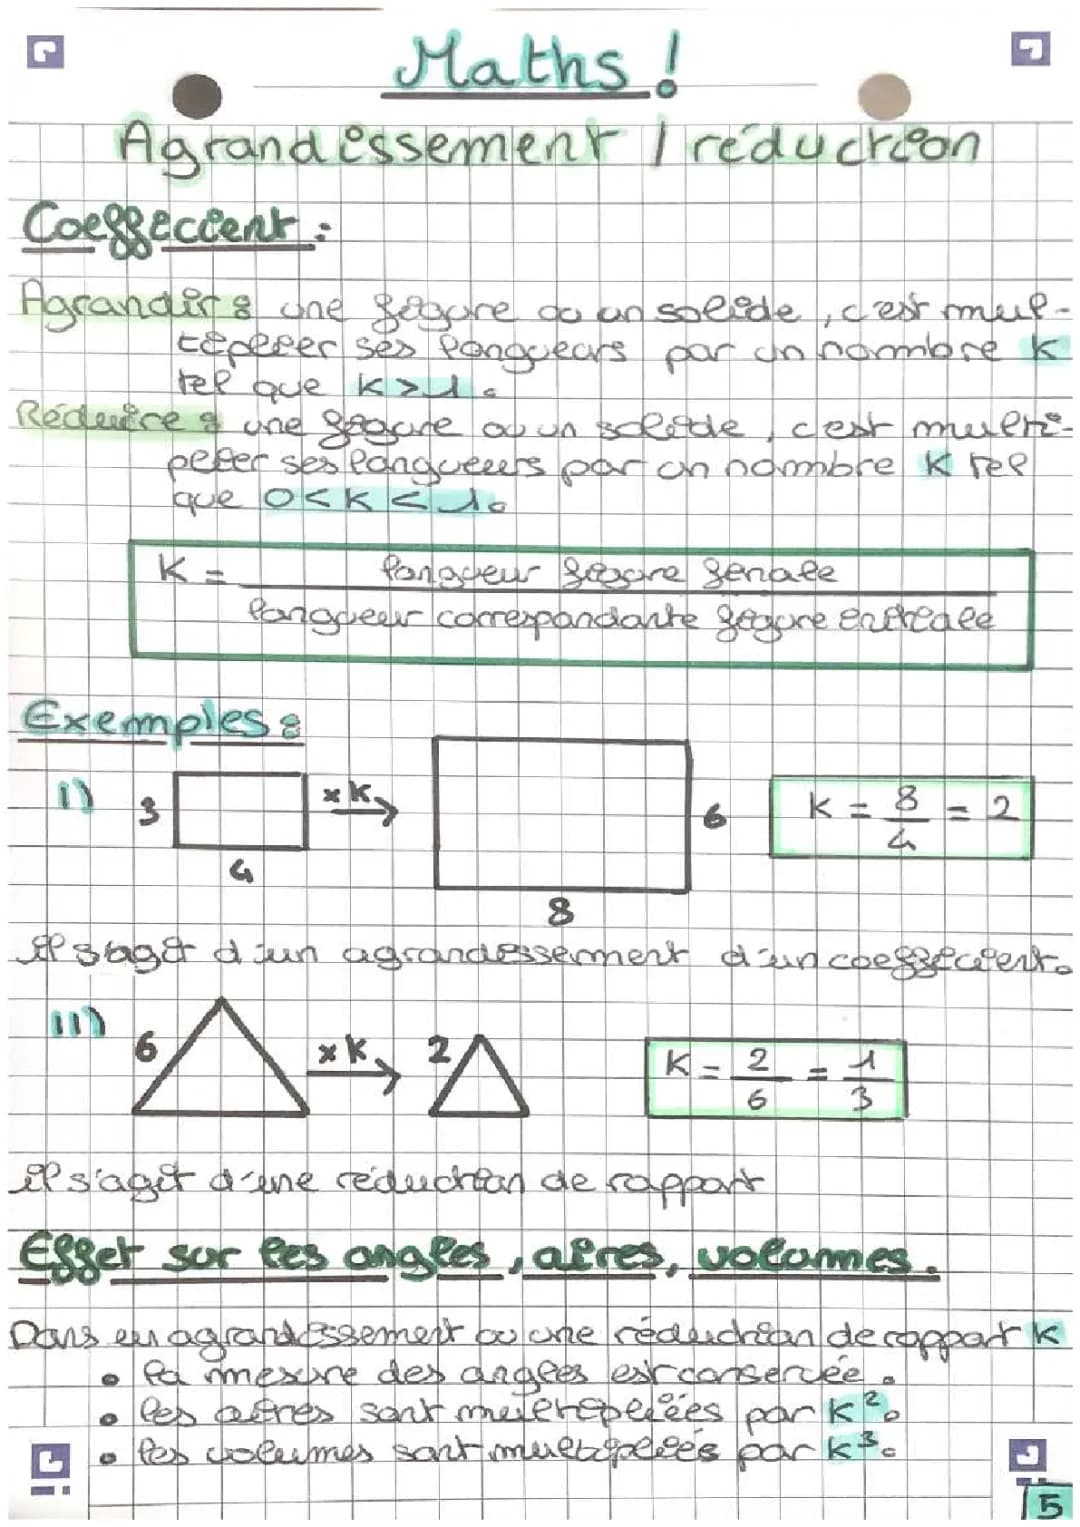 Maths !
Agrandissement / réduction
Coefficient :
Agrandir : une figure ou un solide, c'est mul-
tiplier ses longueurs par un nombre K
tel que K > 1.
Réduire : une figure ou un solide, c'est multi-
plier ses longueurs par un nombre K tel
que 0 < K < 1.
K = longueur figure finale
longueur correspondante figure initiale
Exemples :
I) 3 x K 6 K = 8 = 2
4 4
8
il s'agit d'un agrandissement d'un coefficient.
II) 6 x K 2 K = 2 = 1
6 3
il s'agit d'une réduction de rapport
Effet sur les angles, aires, volumes.
Dans un agrandissement ou une réduction de rapport K
• la mesure des angles est conservée.
• les aires sont multipliées par K².
• les volumes sont multipliés par K³.
5